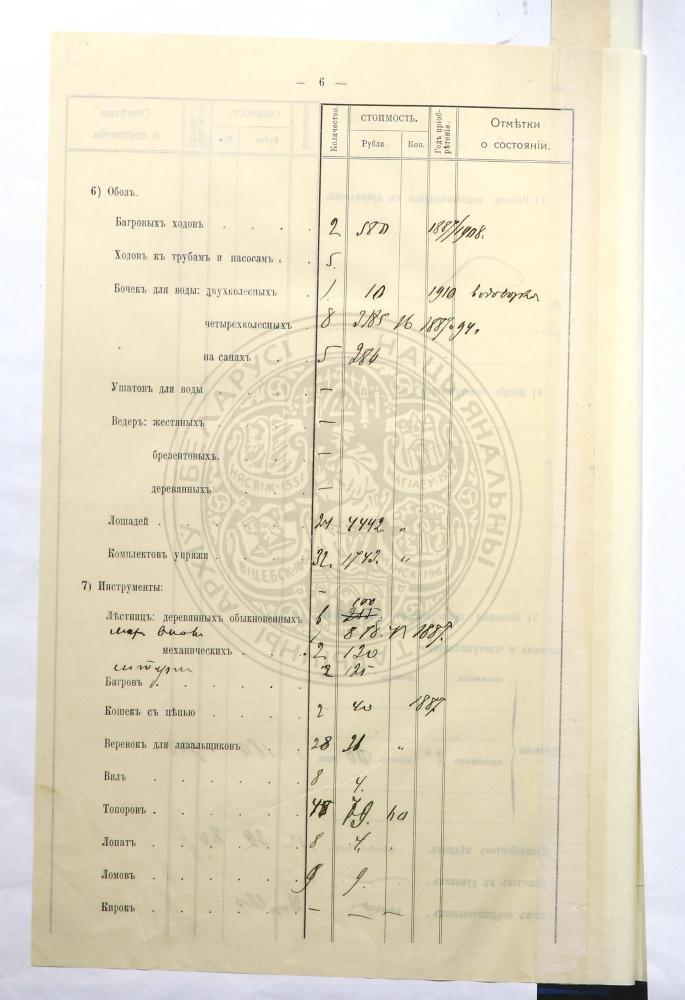 — 6 —
Количество.
СТОИМОСТЬ.
Рубли.
Коп.
Годъ пріоб-
рѣтенія.
Отмѣтки
о состояніи.
6) Обозъ.
Багровыхъ ходовъ 2 580 1887/1908.
Ходовъ къ трубамъ и насосамъ 5.
Бочекъ для воды: двухколесныхъ 1. 10 1910
четырехколесныхъ 8 2185 16
на саняхъ 5 280
Ушатовъ для воды —
Ведеръ: жестяныхъ —
брезентовыхъ. —
деревянныхъ —
Лошадей 4442 "
Комплектовъ упряжи 32. 1742. "
7) Инструменты: —
Лѣстницъ: деревянныхъ обыкновенныхъ 6
1 1887.
механическихъ 2 120
2 125
Багровъ
Кошекъ съ цѣпью 2 40 1887
Веревокъ для лазальщиковъ 28 "
Вилъ 8 4.
Топоровъ
Лопатъ 8 4.
Ломовъ 9 9.
Кирокъ — — —
НАЦЫЯНАЛЬНЫ
БЕЛАРУСІ
НЯСВІЖ-1586